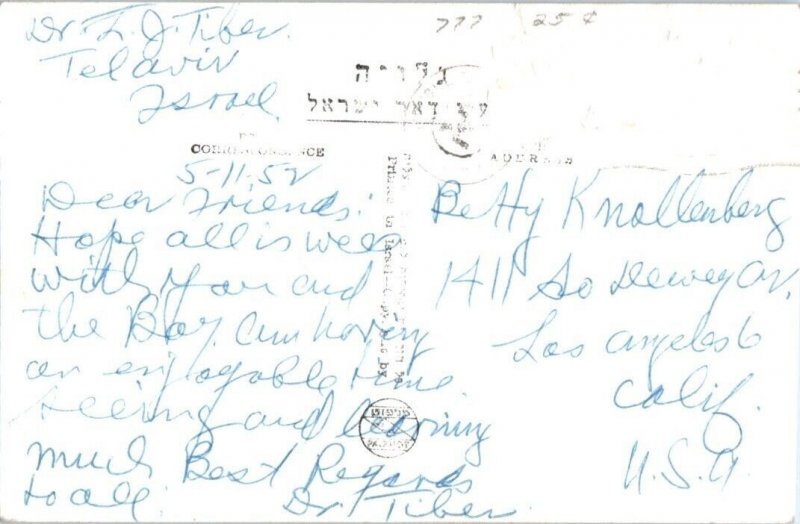 Dr. I. J. Tiber.
Tel aviv
Israel.
777 25¢
דאר ישראל
CORRESPONDENCE
ADDRESS
5-11-52
Dear Friends:
Hope all is well
with you and
the Boy. Am having
an enjoyable time
seeing and learning
much Best Regards
to all.
Dr. Tiber
Betty Knollenberg
1411 So Dewey Av.
Los Angeles 6
Calif.
U.S.A
Printed in Israel
PALPHOT